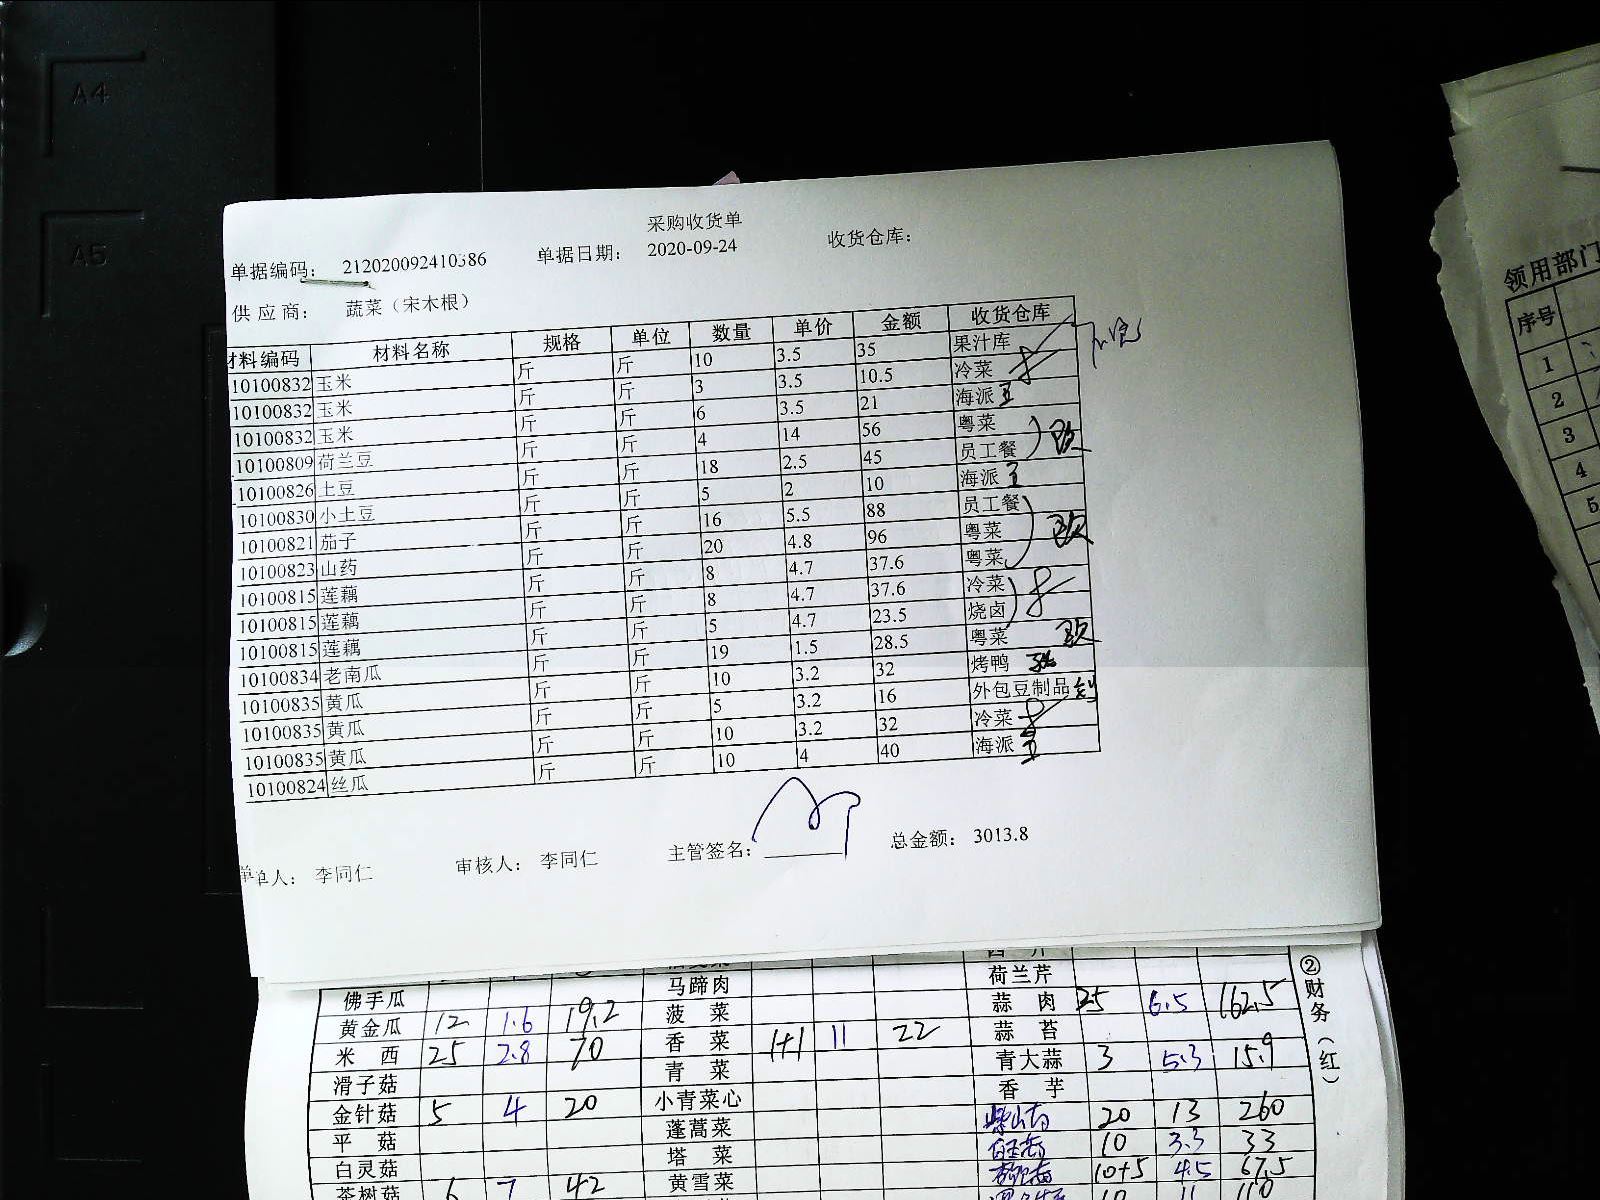 A4
A5
采购收货单
单据编码： 212020092410386 单据日期： 2020-09-24 收货仓库：
供应商： 蔬菜（宋木根）
材料编码 材料名称 规格 单位 数量 单价 金额 收货仓库
10100832 玉米 斤 斤 10 3.5 35 果汁库
10100832 玉米 斤 斤 3 3.5 10.5 冷菜
10100832 玉米 斤 斤 6 3.5 21 海派
10100809 荷兰豆 斤 斤 4 14 56 粤菜
10100826 土豆 斤 斤 18 2.5 45 员工餐
10100830 小土豆 斤 斤 5 2 10 海派
10100821 茄子 斤 斤 16 5.5 88 员工餐
10100823 山药 斤 斤 20 4.8 96 粤菜
10100815 莲藕 斤 斤 8 4.7 37.6 粤菜
10100815 莲藕 斤 斤 8 4.7 37.6 冷菜
10100815 莲藕 斤 斤 5 4.7 23.5 烧卤
10100834 老南瓜 斤 斤 19 1.5 28.5 粤菜
10100835 黄瓜 斤 斤 10 3.2 32 烤鸭
10100835 黄瓜 斤 斤 5 3.2 16 外包豆制品
10100835 黄瓜 斤 斤 10 3.2 32 冷菜
10100824 丝瓜 斤 斤 10 4 40 海派
单人： 李同仁 审核人： 李同仁 主管签名： 总金额： 3013.8
荷兰芹
佛手瓜 马蹄肉 蒜肉 25 6.5 162.5
黄金瓜 12 1.6 19.2 菠菜 蒜苔
米西 25 2.8 70 香菜 1+1 11 22 青大蒜 3 5.3 15.9
滑子菇 青菜 香芋
金针菇 5 4 20 小青菜心 20 13 260
平菇 蓬蒿菜 10 3.3 33
白灵菇 塔菜 10+5 4.5 67.5
茶树菇 6 7 42 黄雪菜 10 11 110
②财务（红）
领用部门
序号
1
2
3
4
5